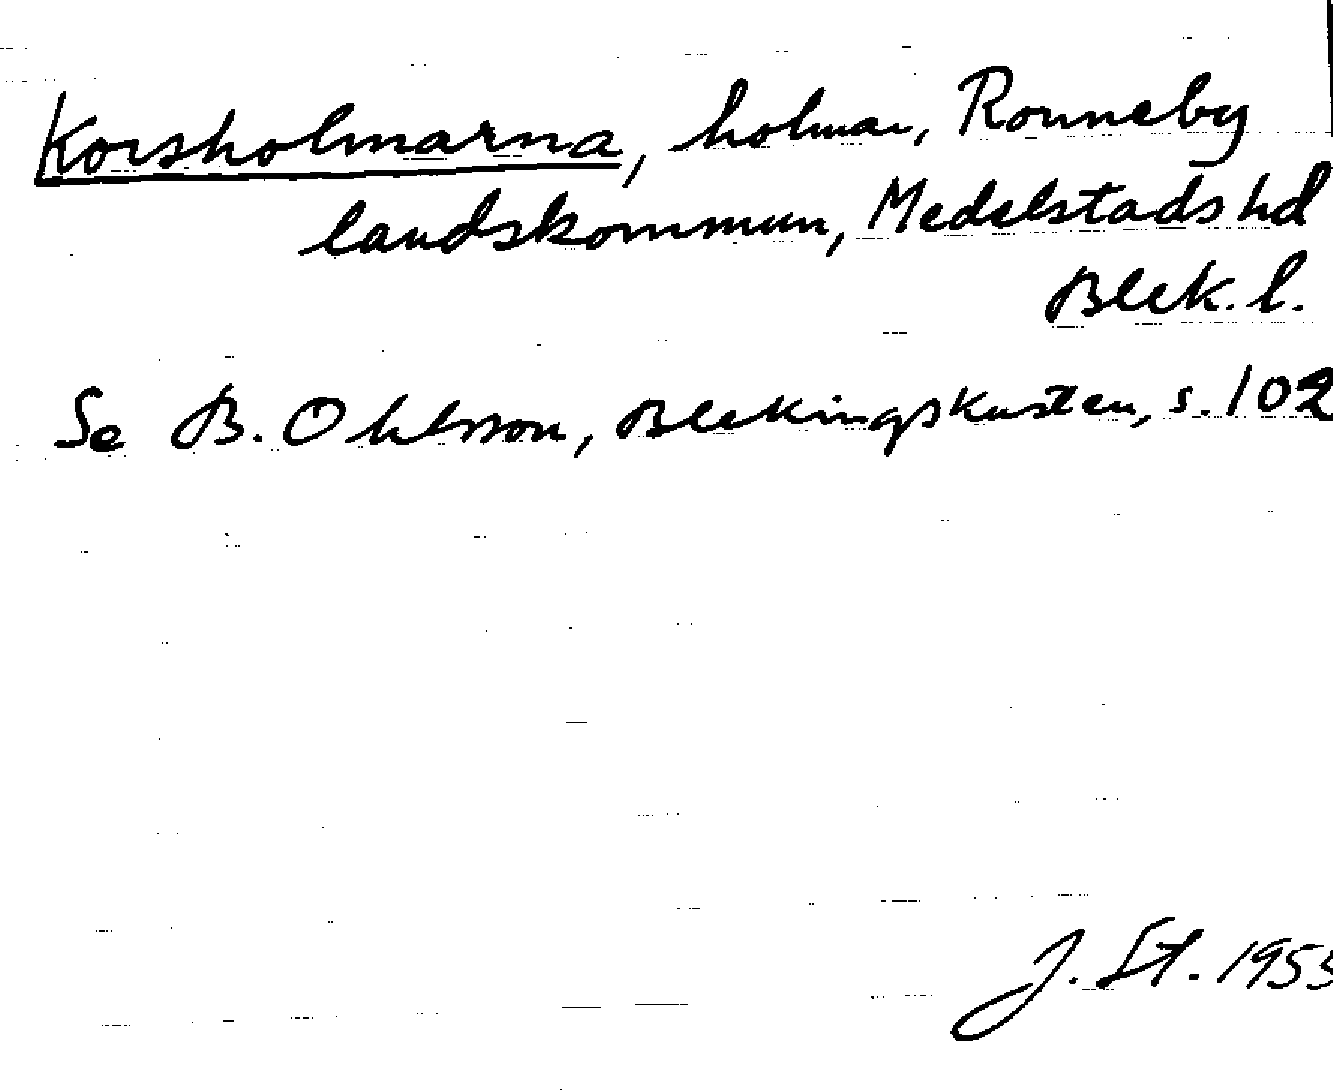 Korsholmarna, holmar, Ronneby
landskommun, Medelstads hd
Blek. l.
Se B. Ohlsson, Blekingskusten, s. 102
J. St. 1953